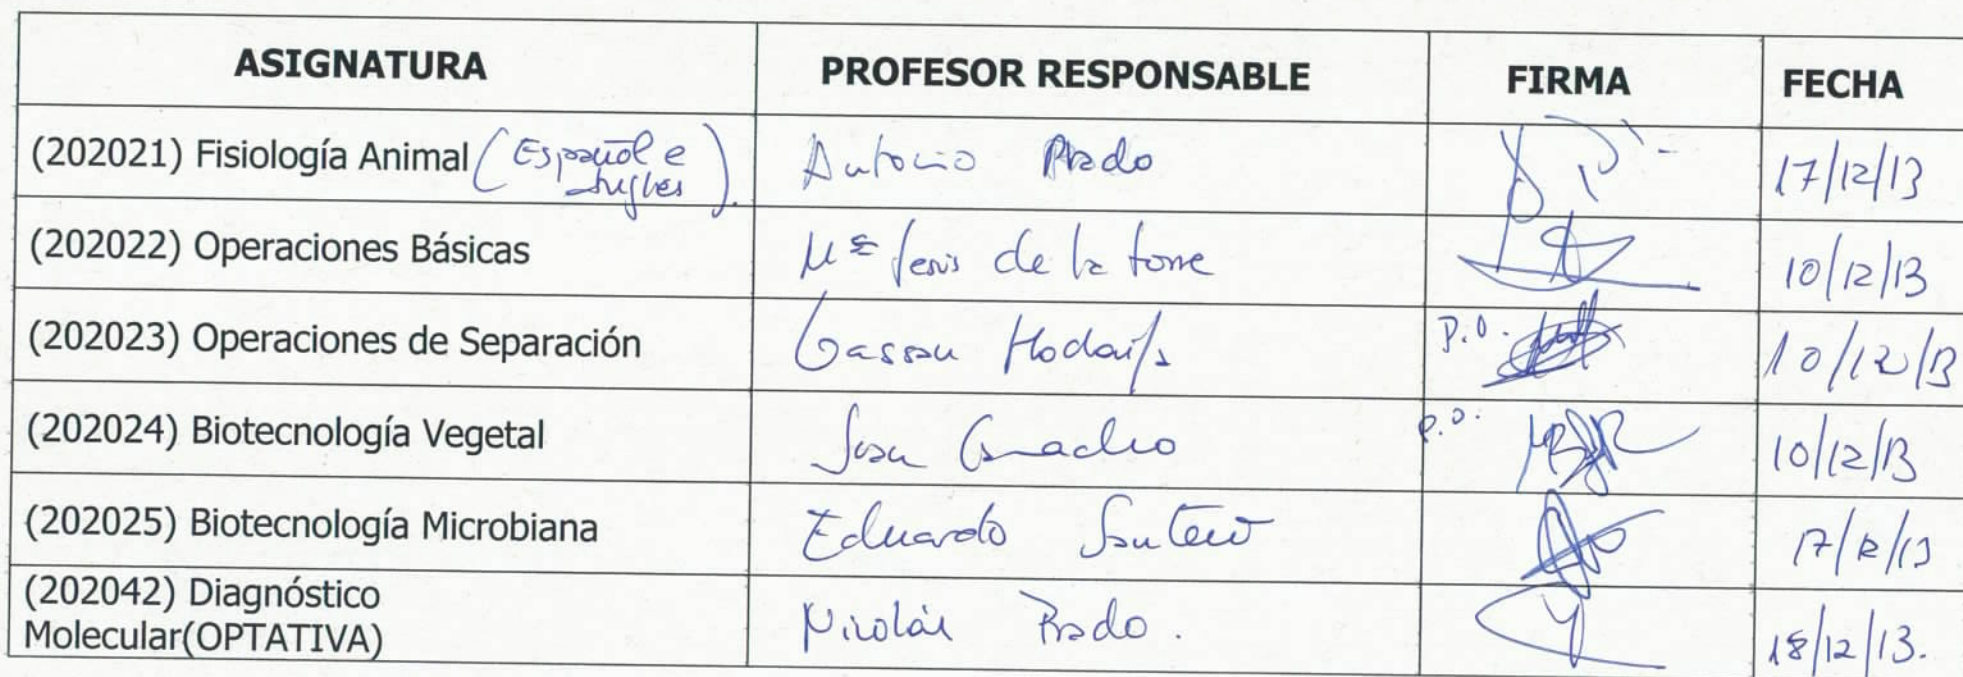 ASIGNATURA PROFESOR RESPONSABLE FIRMA FECHA
(202021) Fisiología Animal (Español e Antonio Prado 17/12/13
Inglés).
(202022) Operaciones Básicas Mª Jesús de la torre 10/12/13
(202023) Operaciones de Separación Gassan Hodaifa P.O. 10/12/13
(202024) Biotecnología Vegetal P.O. 10/12/13
(202025) Biotecnología Microbiana Eduardo Santero 17/12/13
(202042) Diagnóstico
Molecular(OPTATIVA) Nicolás Prado. 18/12/13.